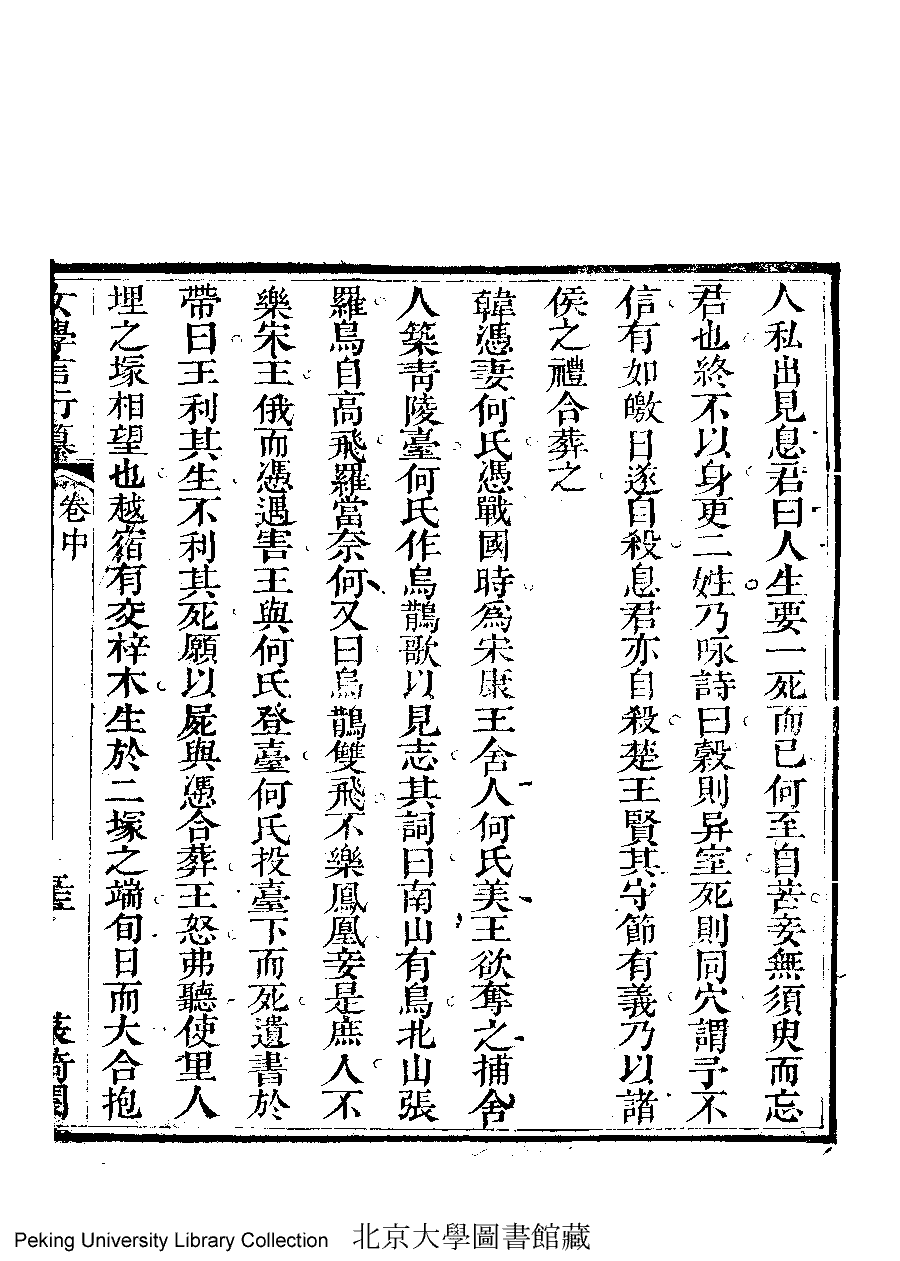 人私出見息君曰人生要一死而已何至自苦妾無須臾而忘
君也終不以身更二姓乃咏詩曰榖則异室死則同穴謂予不
信有如皦日遂自殺息君亦自殺楚王賢其守節有義乃以諸
侯之禮合葬之
韓憑妻何氏憑戰國時為宋康王舍人何氏美王欲奪之捕舍
人築靑陵臺何氏作烏鵲歌以見志其詞曰南山有烏北山張
羅烏自高飛羅當奈何又曰烏鵲雙飛不樂鳳凰妾是庶人不
樂宋王俄而憑遇害王與何氏登臺何氏投臺下而死遺書於
帶曰王利其生不利其死願以屍與憑合葬王怒弗聽使里人
埋之塚相望也越宿有交梓木生於二塚之端旬日而大合抱
女學言行纂 卷中
Peking University Library Collection 北京大學圖書館藏